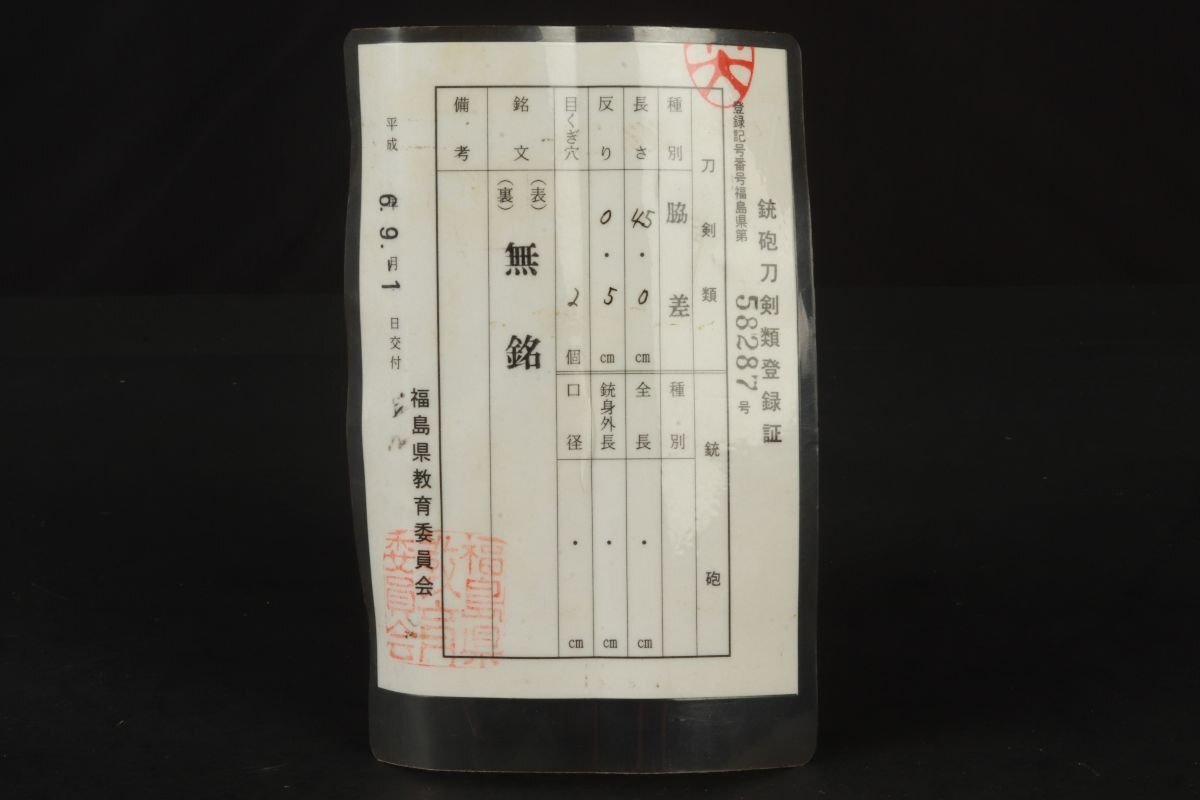 銃砲刀剣類登録証
登録記号番号福島県第58287号
刀剣類
種別 脇差
長さ 45.0cm
反り 0.5cm
目くぎ穴 2個
銘文
(表)
(裏)
無銘
備考
銃砲
種別
全長 ・ cm
銃身外長 ・ cm
口径 ・ cm
平成6.9.月1日交付
福島県教育委員会
福島県
教育
委員会